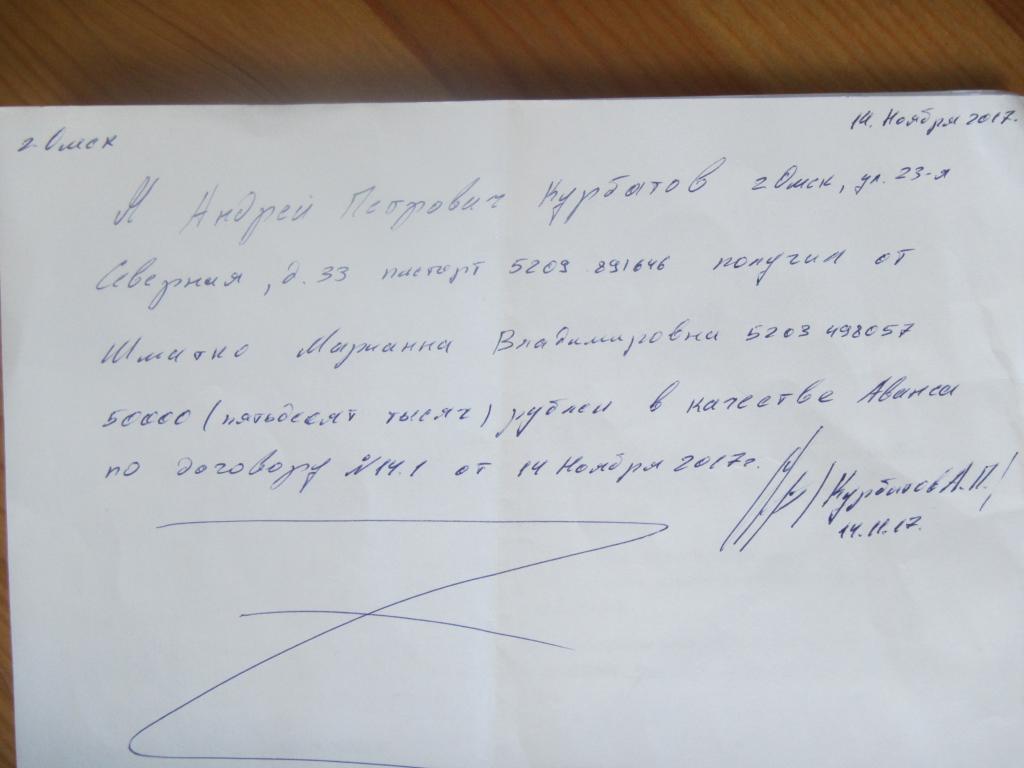 г. Омск
14. Ноября 2017.
Я Андрей Петрович Курбатов г Омск, ул. 23-я
Северная, д. 33 паспорт 5209 891646 получил от
Шматко Марианна Владимировна 5203 498057
50000 (пятьдесят тысяч) рублей в качестве Аванса
по договору №14.1 от 14 Ноября 2017г.
/Курбатов А.П./
14.11.17.